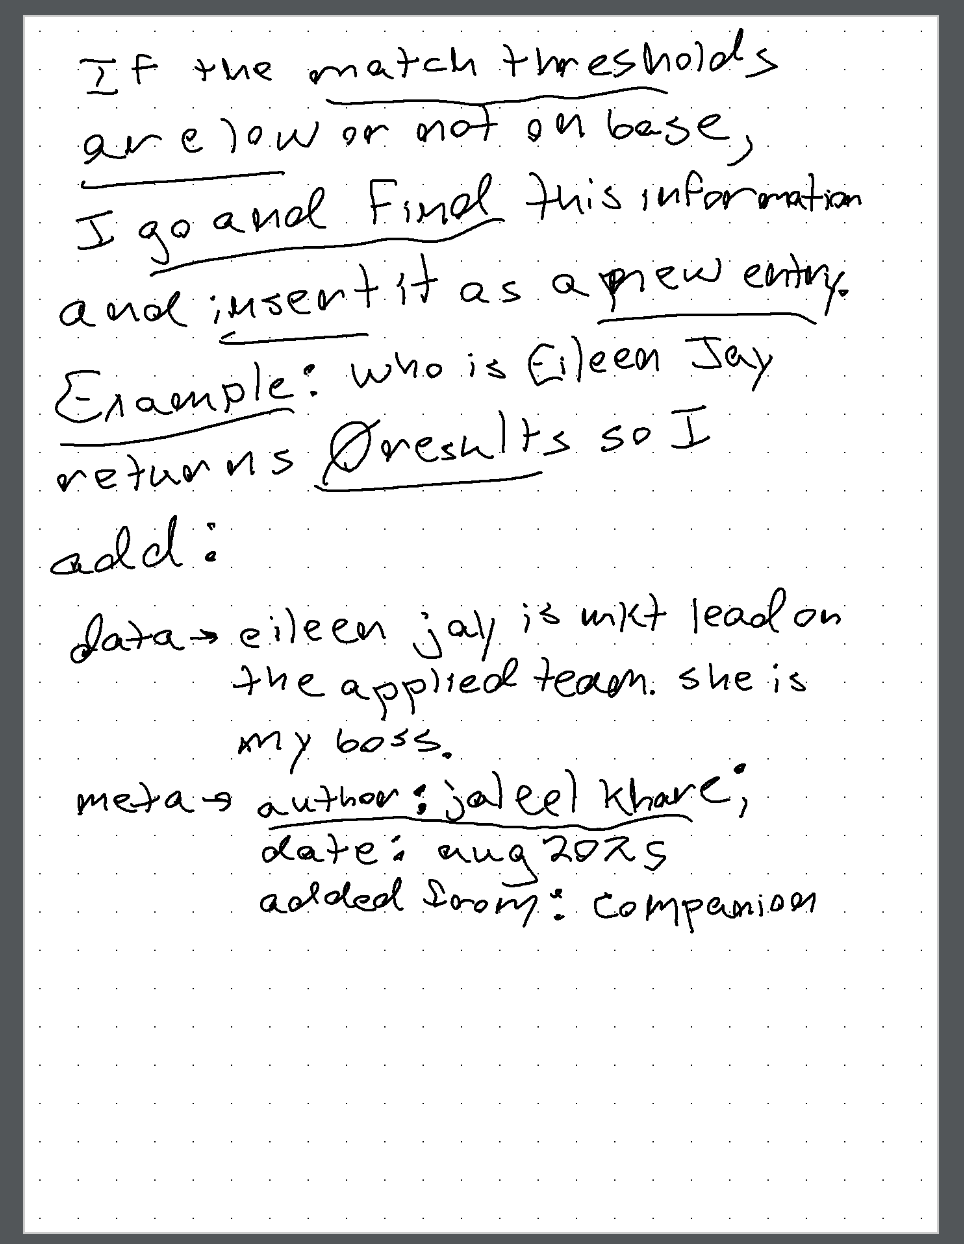 If the match thresholds
are low or not on base,
I go and Find this information
and insert it as a new entry.
Example: who is Eileen Jay
returns Ø results so I
add:
data → eileen jay is mkt lead on
the applied team. she is
my boss.
meta → author: jaleel khare;
date: aug 2025
added from: companion